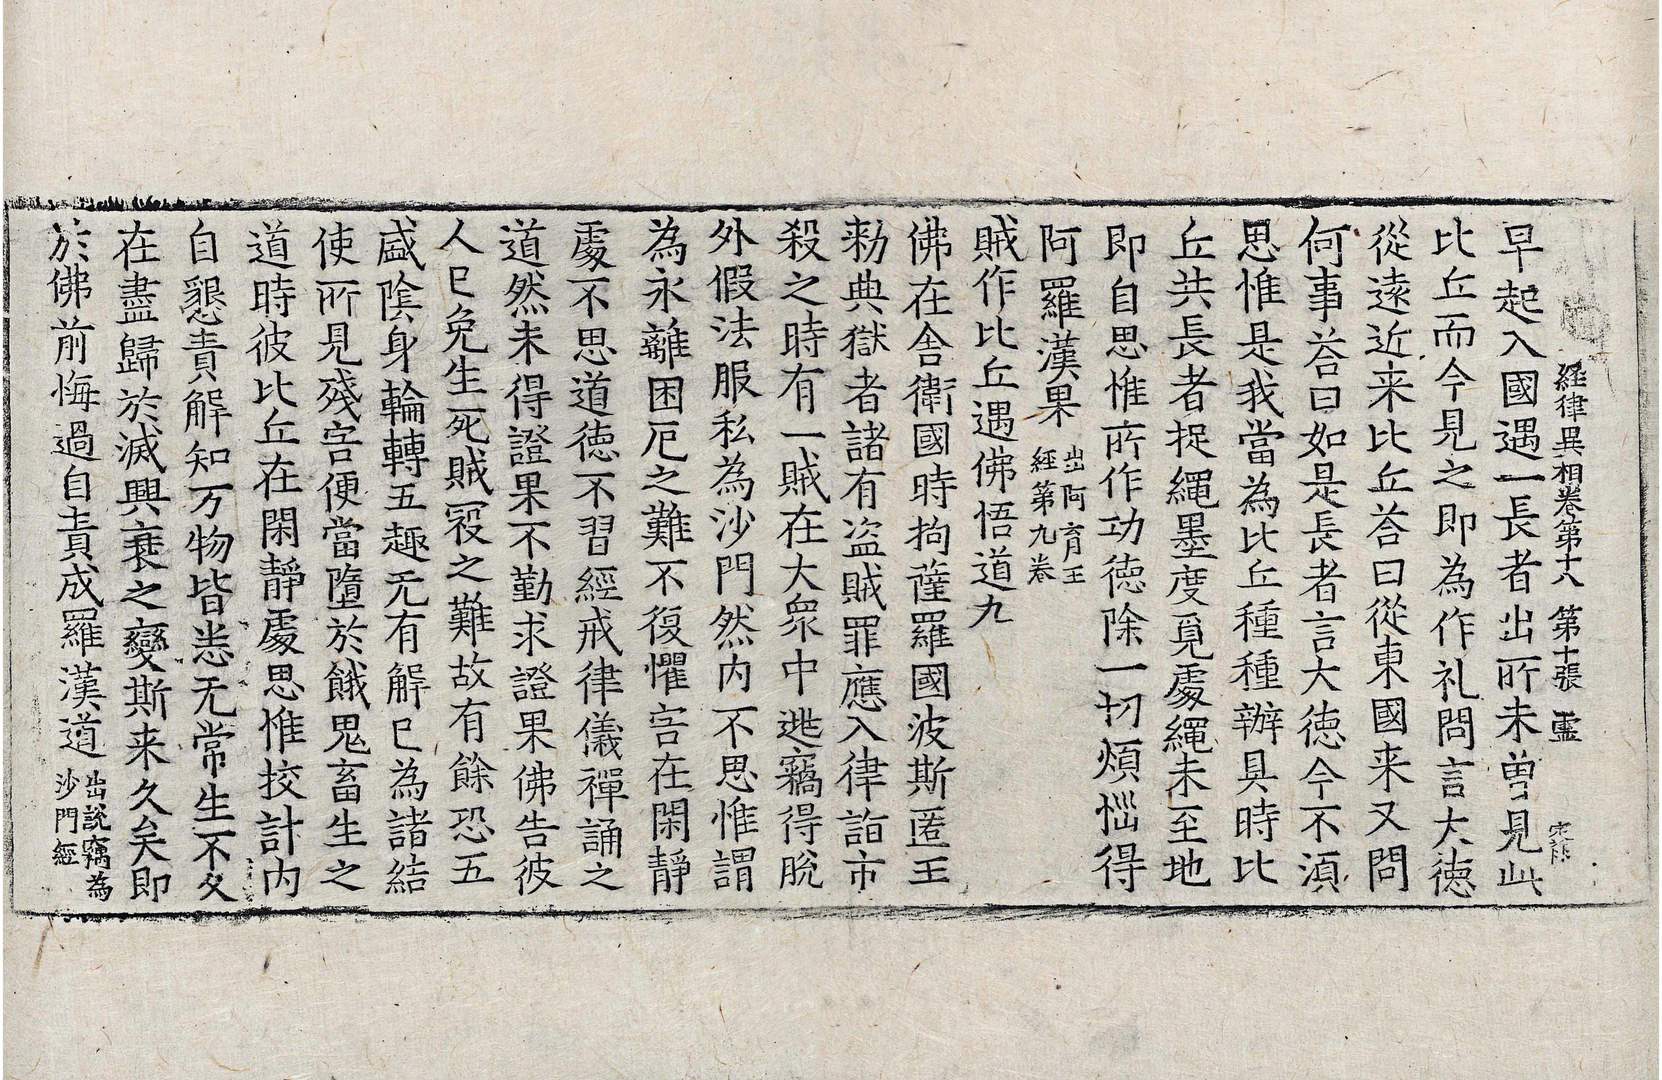 經律異相卷第十八 第十張 靈
早起入國遇一長者出所未曾見此
比丘而今見之即為作礼問言大德
從遠近来比丘荅曰從東國来又問
何事荅曰如是長者言大德今不湏
思惟是我當為比丘種種辦具時比
丘共長者捉繩墨度覓處繩未至地
即自思惟所作功德除一切煩惱得
阿羅漢果 出阿育王經第九卷
賊作比丘遇佛悟道九
佛在舍衛國時拘薩羅國波斯匿王
勑典獄者諸有盜賊罪應入律詣市
殺之時有一賊在大衆中逃竊得脫
外假法服私為沙門然内不思惟謂
為永離困厄之難不復懼害在閑靜
處不思道德不習經戒律儀禪誦之
道然未得證果不勤求證果佛告彼
人已免生死賊冦之難故有餘恐五
盛陰身輪轉五趣无有解已為諸結
使所見殘害便當墮於餓鬼畜生之
道時彼比丘在閑靜處思惟挍計内
自懇責解知万物皆悉无常生不久
在盡歸於滅興衰之變斯来久矣即
於佛前悔過自責成羅漢道 出説竊為沙門經